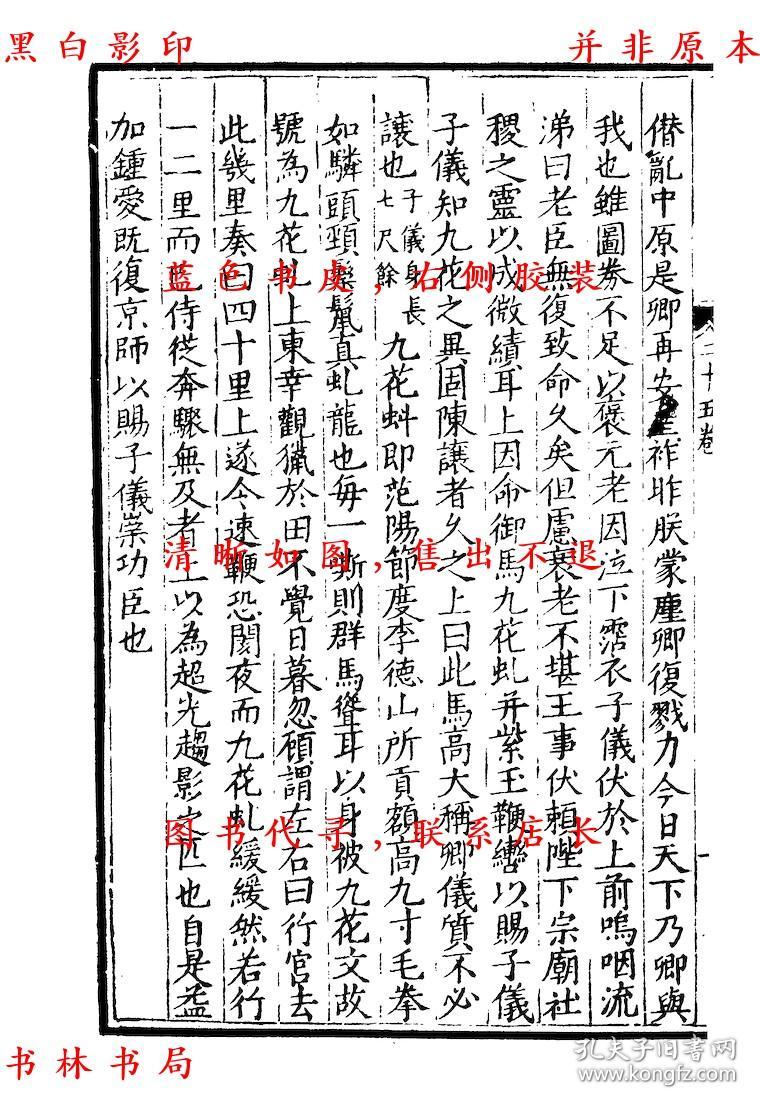 黑白影印
并非原本
僣亂中原是卿再安皇祚昨朕蒙塵卿復戮力今日天下乃卿與
我也雖圖券不足以褒元老因泣下霑衣子儀伏於上前嗚咽流
涕曰老臣無復致命久矣但慮衰老不堪王事伏頼陛下宗廟社
稷之靈以成微績耳上因命御馬九花虬并紫玉鞭轡以賜子儀
子儀知九花之異固陳讓者久之上曰此馬高大稱卿儀質不必
讓也子儀身長七尺餘九花虬即范陽節度李德山所貢額高九寸毛拳
如驎頭頸鬃鬣真虬龍也每一嘶則群馬聳耳以身被九花文故
號為九花虬上東幸觀獵於田不覺日暮忽顧謂左右曰行宮去
此幾里奏曰四十里上遂令速鞭恐閡夜而九花虬緩緩然若行
一二里而侍從奔驟無及者上以為超光趨影之匹也自是益
加鍾愛既復京師以賜子儀崇功臣也
二十五卷
蓝色书皮，右侧胶装
清晰如图，售出不退
图书代寻，联系店长
书林书局
孔夫子旧书网
www.kongfz.com